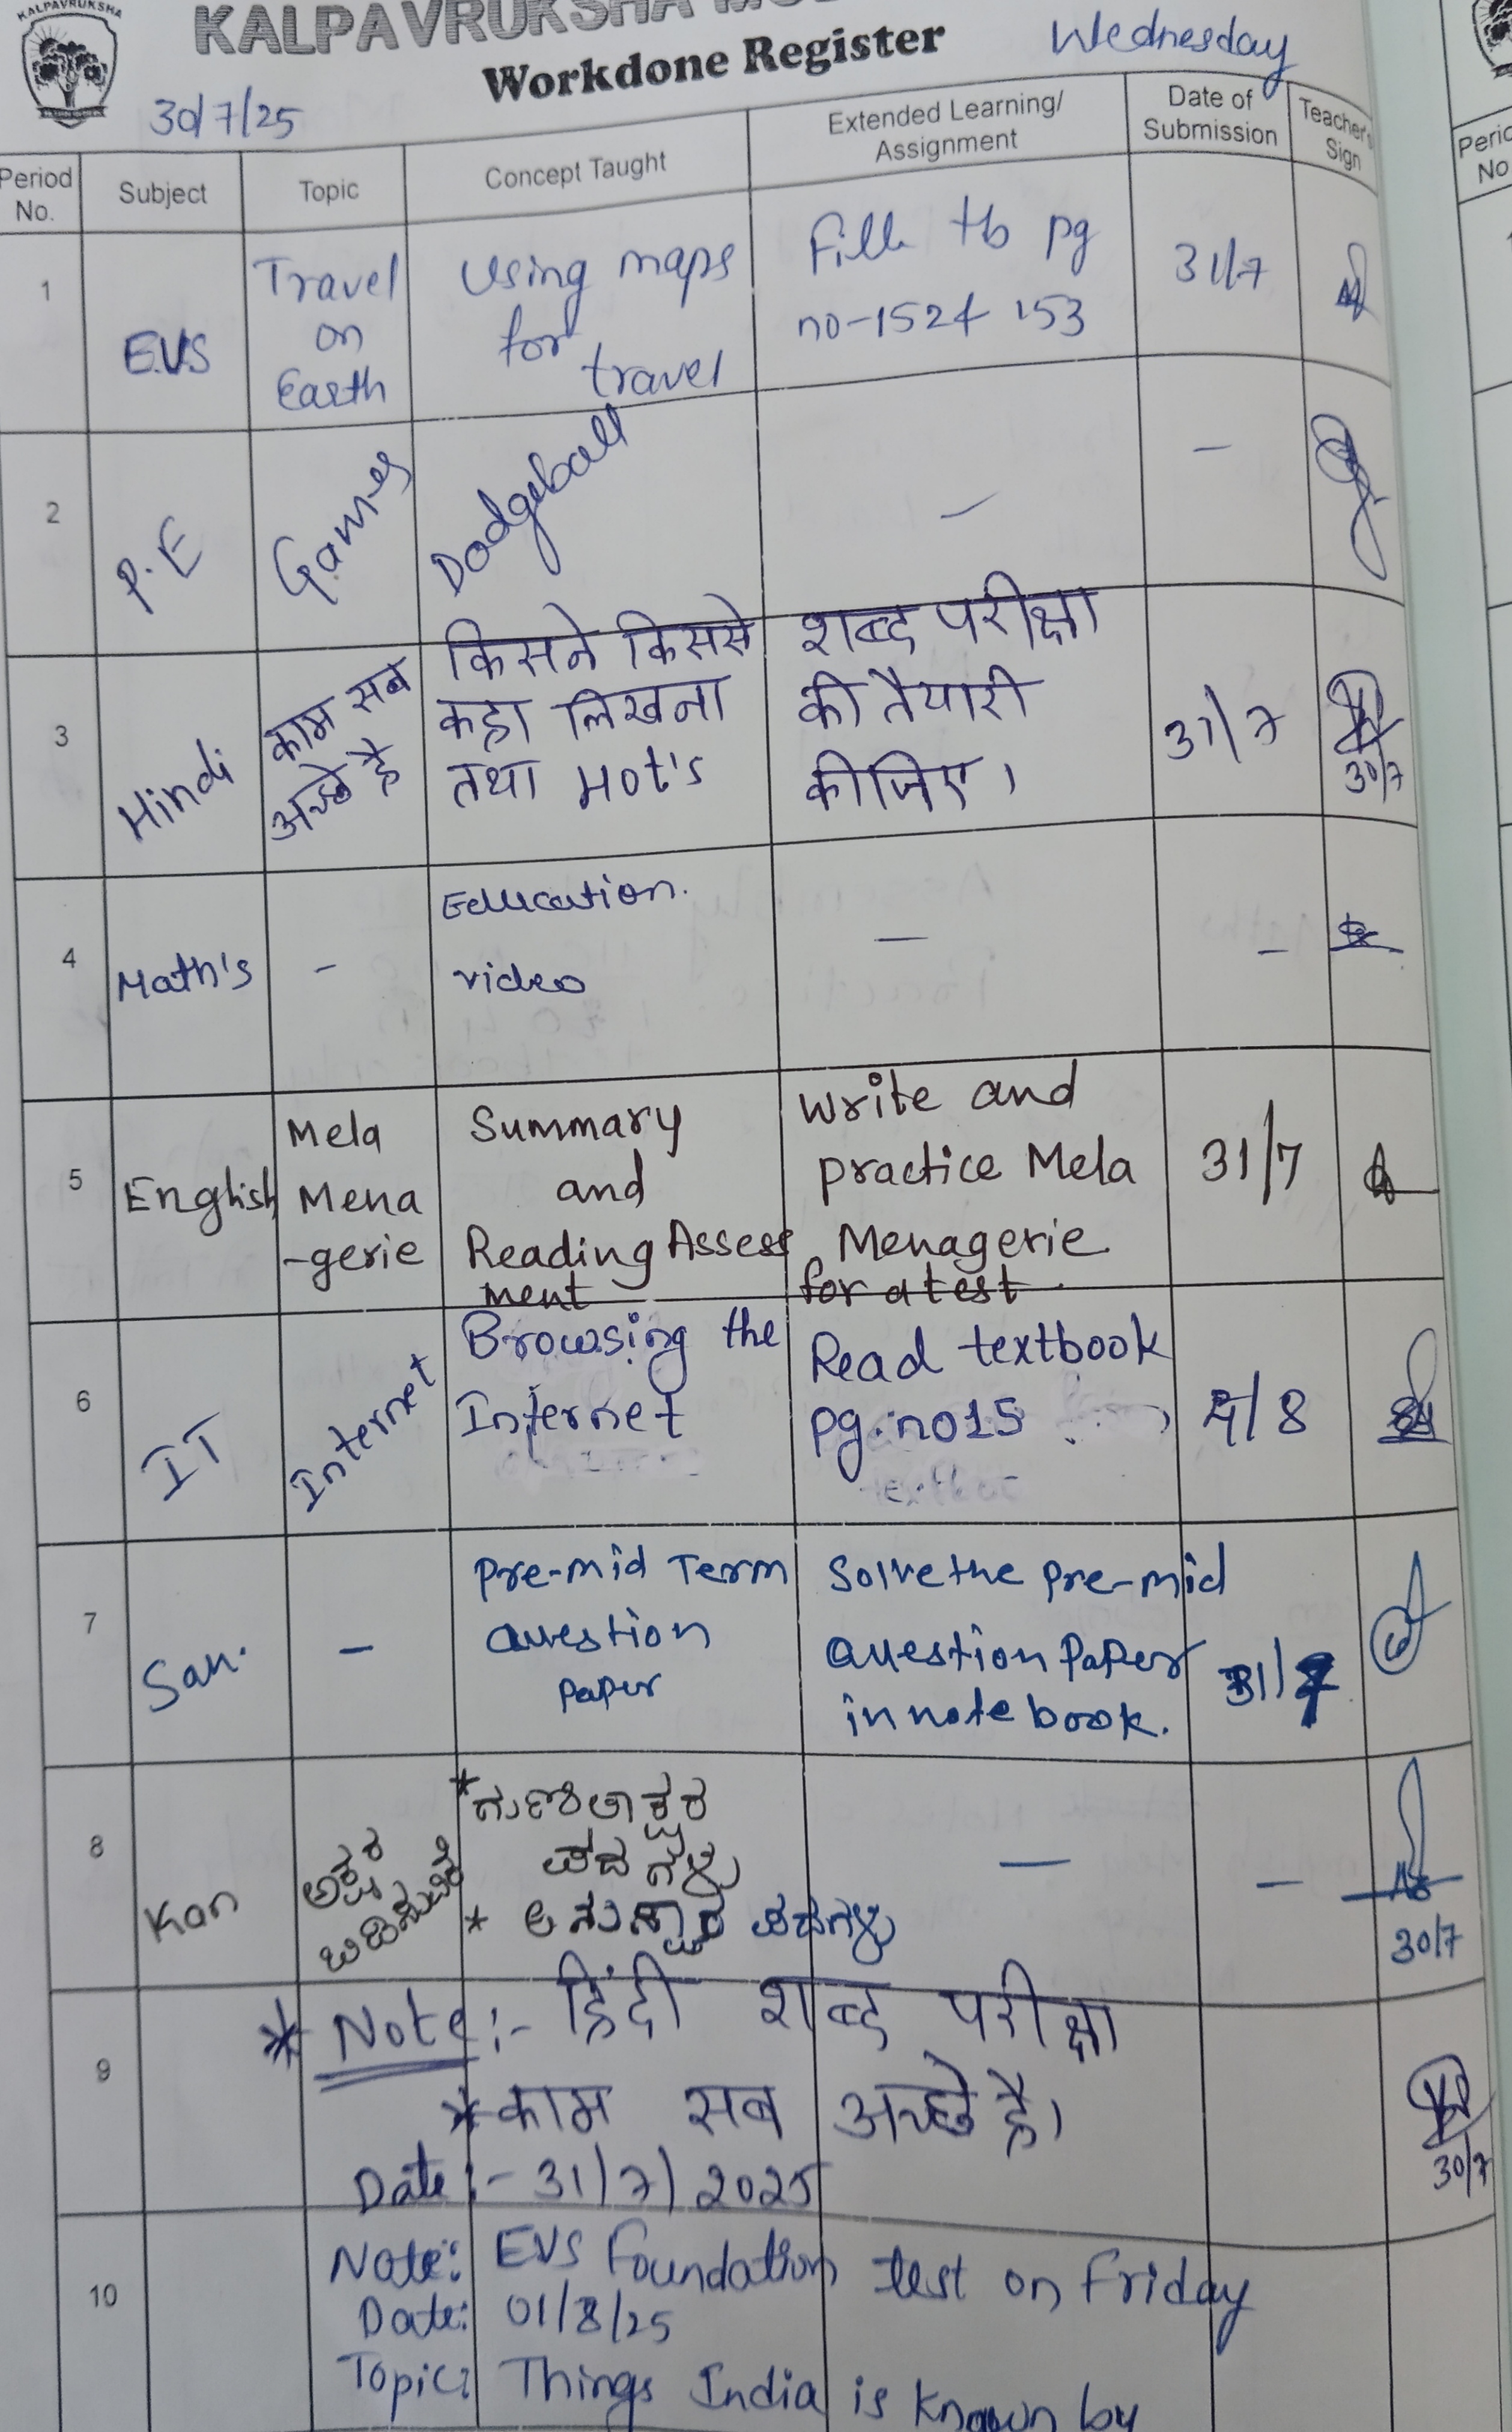 KALPAVRUKSHA
KALPAVRUKSHA
Workdone Register
Wednesday
30/7/25
Period No.
Subject
Topic
Concept Taught
Extended Learning/
Assignment
Date of
Submission
Teacher's
Sign
1
EVS
Travel
on
Earth
Using maps
for
travel
Fill tb pg
no-152+ 153
31/7
2
P.E
Games
Dodgeball
—
—
3
Hindi
काम सब
अच्छे है
किसने किससे
कहा लिखना
तथा Hot's
शब्द परीक्षा
की तैयारी
कीजिए।
31/7
30/7
4
Math's
-
Education.
video
—
-
5
English
Mela
Mena
-gerie
Summary
and
Reading Assess
ment
Write and
practice Mela
Menagerie
for a test.
31/7
6
IT
Internet
Browsing the
Internet
Read textbook
pg.no15
/8
7
San.
-
Pre-mid Term
Question
Paper
Solve the pre-mid
Question Paper
in note book.
31/7
8
Kan
ಅಕ್ಷರ
*ಗುಣಿತಾಕ್ಷರ
ಪದಗಳು
* ಅನುಸ್ವಾರ ಪದಗಳು
—
-
30/7
9
* Note:- हिंदी शब्द परीक्षा
*काम सब अच्छे है।
Date:- 31/7/2025
30/7
10
Note: EVS Foundation test on Friday
Date: 01/8/25
Topic: Things India is known by
Period
No